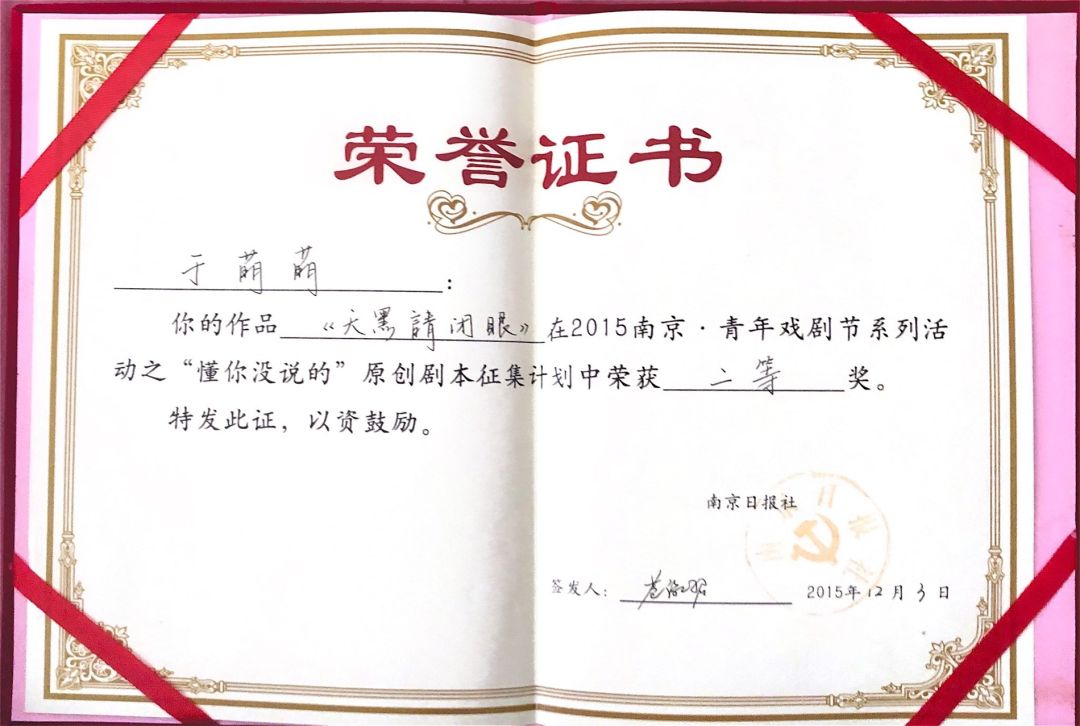 荣誉证书
于萌萌:
你的作品《天黑請闭眼》在2015南京·青年戏剧节系列活
动之“懂你没说的”原创剧本征集计划中荣获二等奖。
特发此证，以资鼓励。
南京日报社
签发人:
2015年12月3日